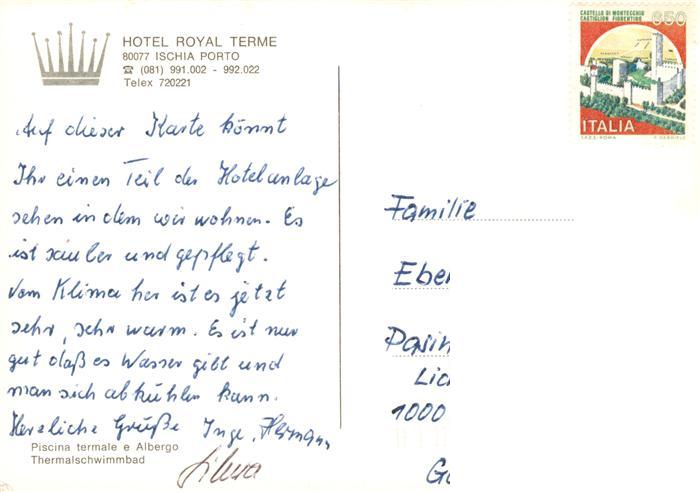 HOTEL ROYAL TERME
80077 ISCHIA PORTO
☎ (081) 991.002 - 992.022
Telex 720221
CASTELLO DI MONTECCHIO
CASTIGLION FIORENTINO
650
ITALIA
Auf dieser Karte könnt
Ihr einen Teil der Hotelanlage
sehen in dem wir wohnen. Es
ist sauber und gepflegt.
Vom Klima her ist es jetzt
sehr, sehr warm. Es ist nur
gut daß es Wasser gibt und
man sich abkühlen kann.
Herzliche Grüße Inge, Hermann
Piscina termale e Albergo
Thermalschwimmbad
Familie
Eber
Pasin
1000